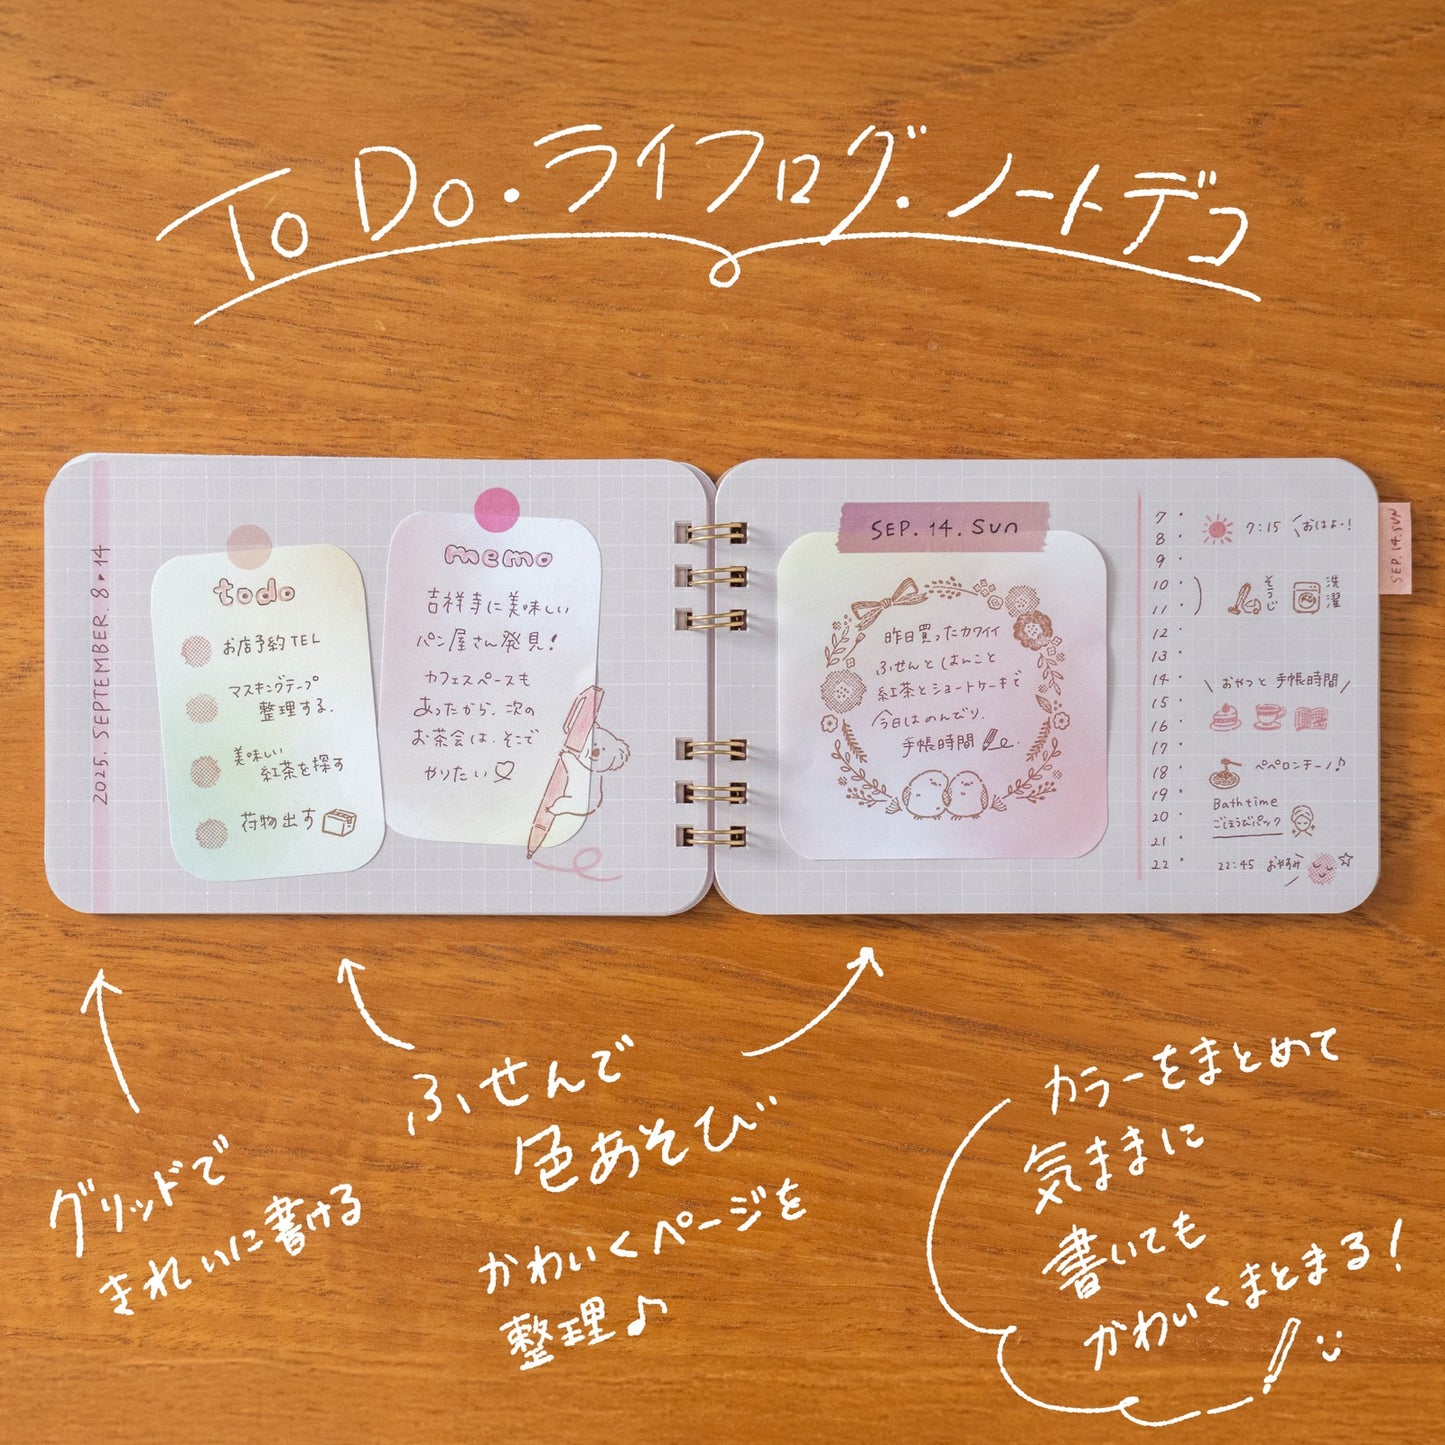 To Do・ライフログ・ノートデコ
2025. SEPTEMBER. 8・14
todo
お店予約TEL
マスキングテープ
整理する.
美味しい
紅茶を探す
荷物出す
memo
吉祥寺に美味しい
パン屋さん発見!
カフェスペースも
あったから、次の
お茶会は、そこで
やりたい♡
SEP. 14. Sun
昨日買ったカワイイ
ふせんとはんこと
紅茶とショートケーキで
今日はのんびり.
手帳時間
7
8
9
10
11
12
13
14
15
16
17
18
19
20
21
22
7:15 おはよー!
そうじ
洗濯
おやつと手帳時間
ペペロンチーノ♪
Bath time
ごほうびパック
22:45 おやすみ
SEP. 14. SUN
グリッドで
きれいに書ける
ふせんで
色あそび
かわいくページを
整理♪
カラーをまとめて
気ままに
書いても
かわいくまとまる!